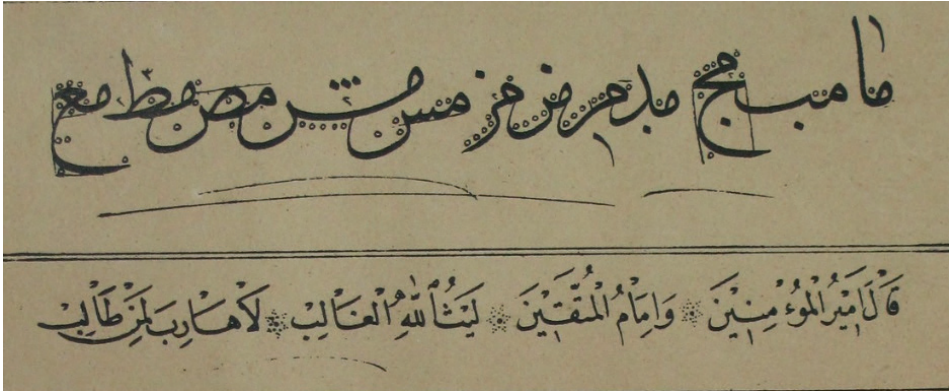 ما مب مج مد مر مز مز مس مش مص مط مع
قَالَ اَمِيْرُ الْمُؤْمِنِيْنَ وَاِمَامُ الْمُتَّقِيْنَ لَيْثُ اللّٰهِ الْغَالِبْ لَاهَارِبَ لِمَنْ طَالِبْ